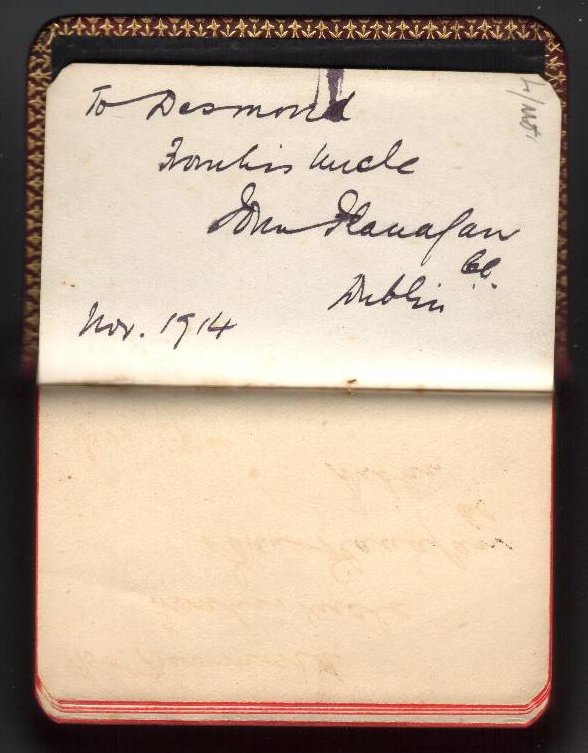 To Desmond
From his Uncle
John Flanagan
C.C.
Dublin
Nov. 1914